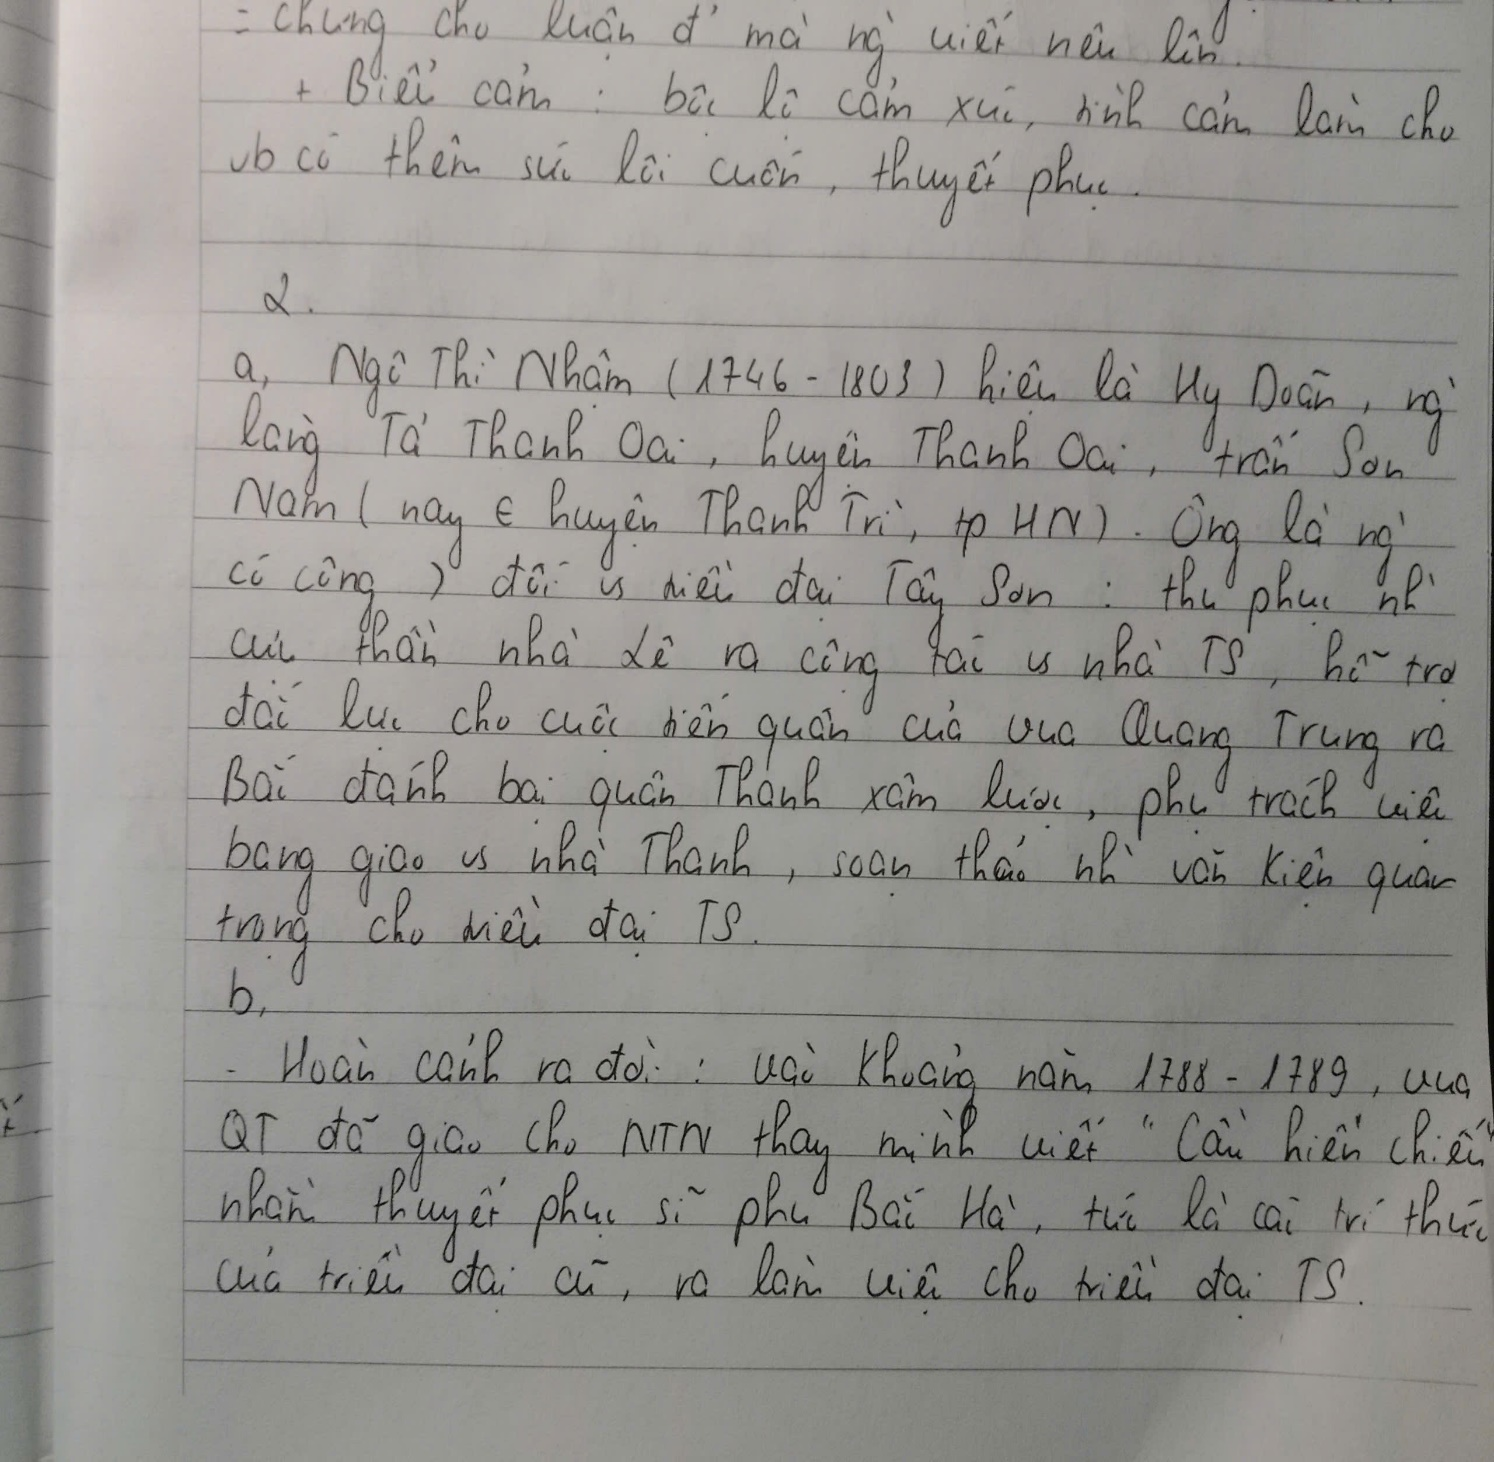 = chứng cho luận đ' mà ng' viết nêu lên.
+ Biểu cảm : bộc lộ cảm xúc, tình cảm làm cho
vb có thêm sức lôi cuốn, thuyết phục.
2.
a, Ngô Thì Nhậm (1746 - 1803) hiệu là Hy Doãn, ng'
làng Tả Thanh Oai, huyện Thanh Oai, trấn Sơn
Nam ( nay ∈ huyện Thanh Trì, tp HN). Ông là ng'
có công ) đối vs triều đại Tây Sơn : thu phục nh'
cựu thần nhà Lê ra cộng tác vs nhà TS, hỗ trợ
đắc lực cho cuộc tiến quân của vua Quang Trung ra
Bắc đánh bại quân Thanh xâm lược, phụ trách việc
bang giao vs nhà Thanh, soạn thảo nh' văn kiện quan
trọng cho triều đại TS.
b,
- Hoàn cảnh ra đời : vào khoảng năm 1788 - 1789, vua
QT đã giao cho NTN thay mình viết "Cầu hiền chiếu"
nhằm thuyết phục sĩ phu Bắc Hà, tức là các trí thức
của triều đại cũ, ra làm việc cho triều đại TS.